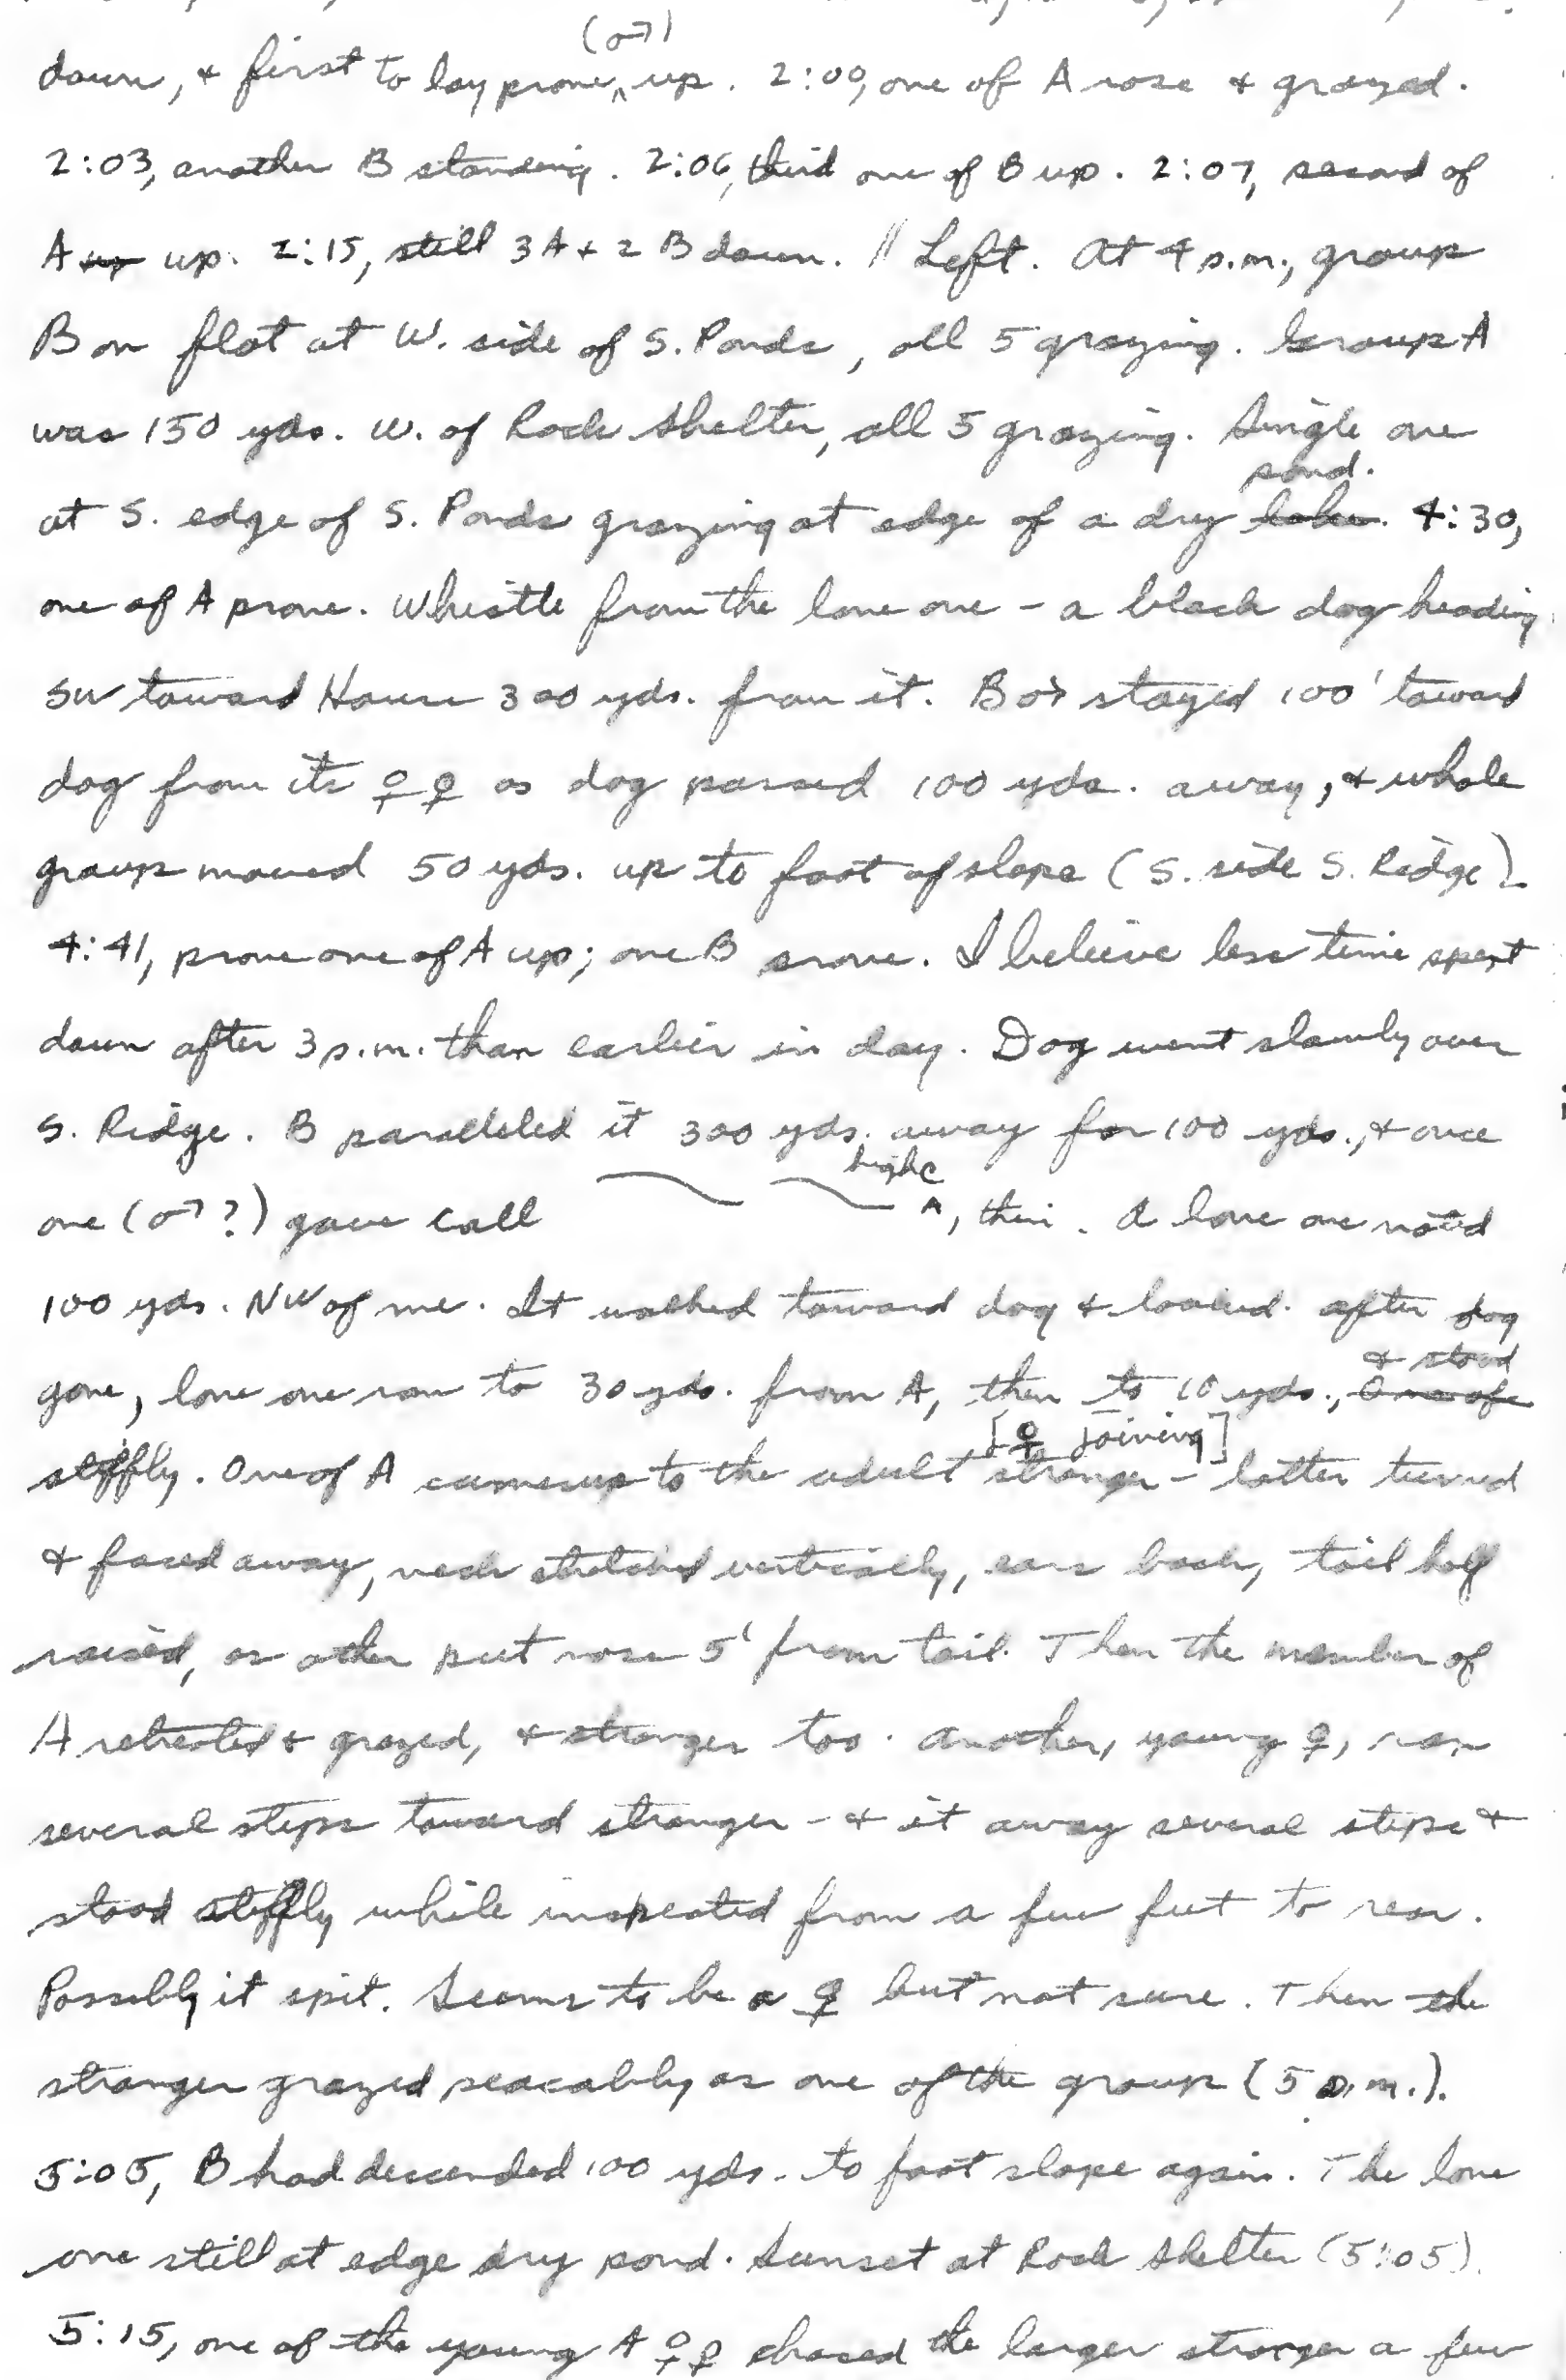 (♂)
down, & first to lay prone ^ up. 2:00, one of A rose & grazed.
2:03, another B standing. 2:06, third one of B up. 2:07, second of
A up up. 2:15, still 3 A + 2 B down. // Left. At 4 p.m., group
B on flat at W. side of S. Ponds, all 5 grazing. Group A
was 150 yds. W. of Rock Shelter, all 5 grazing. Single one
pond.
at S. edge of S. Ponds grazing at edge of a dry lake. 4:30,
one of A prone. Whistle from the lone one - a black dog heading
SW toward House 300 yds. from it. B ♂ stayed 100' toward
dog from its ♀♀ as dog passed 100 yds. away, & whole
group moved 50 yds. up to foot of slope (S. side S. Ridge).
4:41, prone one of A up; one B prone. I believe less time spent
down after 3 p.m. than earlier in day. Dog went slowly over
S. Ridge. B paralleled it 300 yds. away for 100 yds., & once
high C
one (♂?) gave call ^, thin. A lone one noted
100 yds. NW of me. It walked toward dog & looked. After dog
gone, lone one ran to 30 yds. from A, then to 10 yds., One of
& stood
stiffly. One of A came up to the adult stranger - latter turned
[♀ joining]
& faced away, neck stretched vertically, ears back, tail half
raised, as other put nose 5' from tail. Then the member of
A retreated & grazed, & stranger too. Another, young ♀, ran
several steps toward stranger - & it away several steps &
stood stiffly while inspected from a few feet to rear.
Possibly it spit. Seems to be a ♀ but not sure. Then the
stranger grazed peacably as one of the group (5 p.m.).
5:05, B had descended 100 yds. to foot slope again. The lone
one still at edge dry pond. Sunset at Rock Shelter (5:05).
5:15, one of the young A ♀♀ chased the larger stranger a few